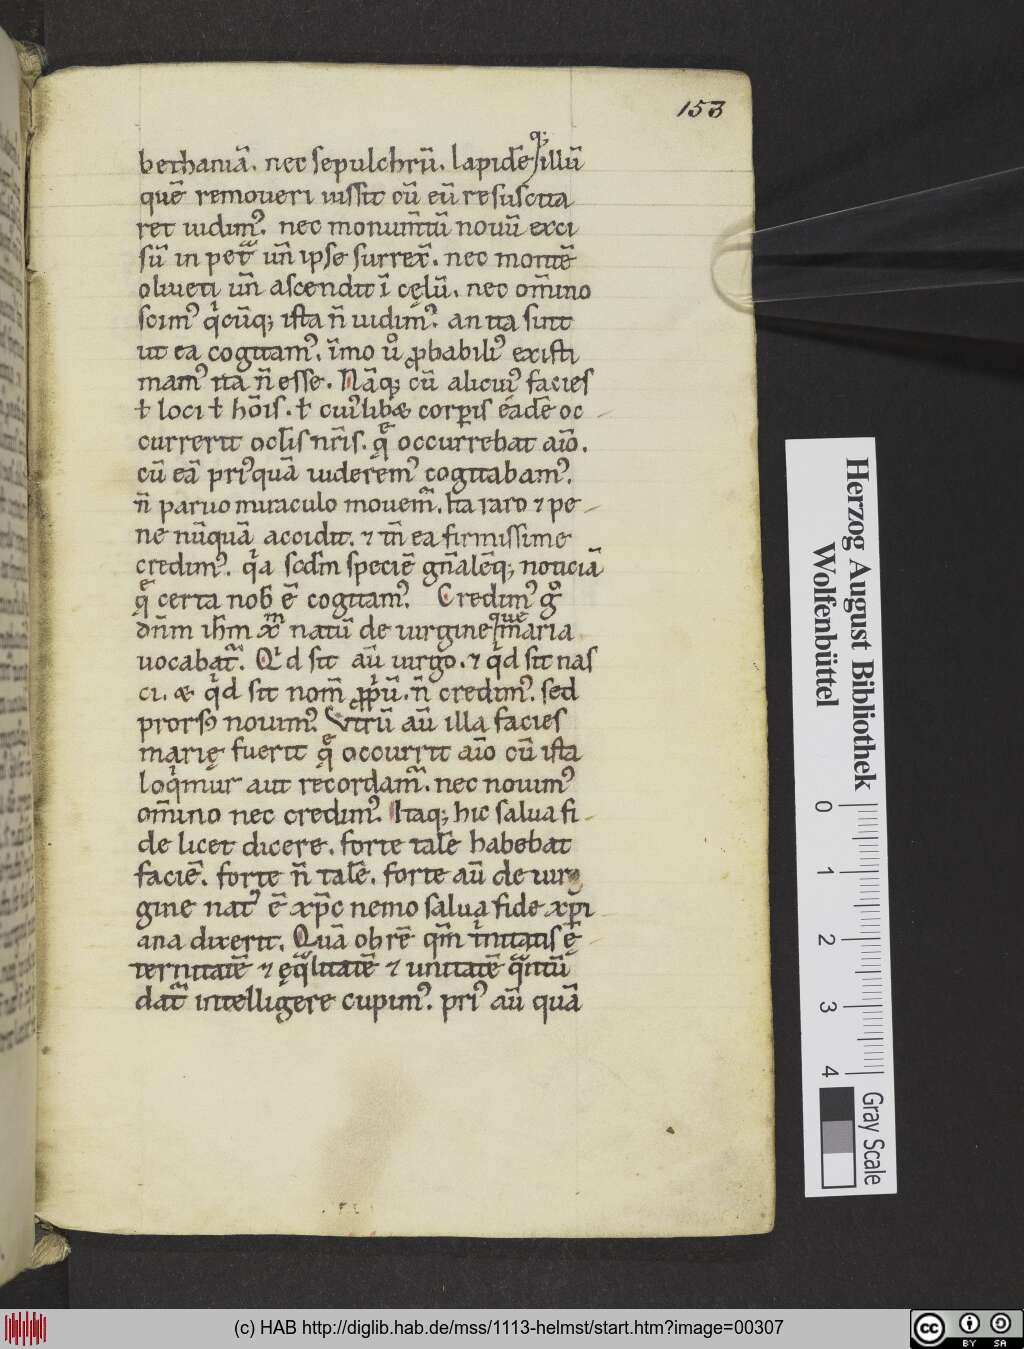 153
bethaniā. nec sepulchrū. lapidē q; illū
quē removeri iussit cū eū resuscita
ret vidimꝰ. nec monum̄tū nouū exci
sū in petᷓ un̄ ipse surrex̄. nec montē
oliueti un̄ ascendit ī cęlū. nec om̄ino
scimꝰ qͥcūq; ista n̄ uidimꝰ. an ita sint
ut ea cogitamꝰ. īmo uͦ ꝓbabiliꝰ existi
mamꝰ ita n̄ esse. Nāq; cū alicuiꝰ facies
ƚ loci ƚ hōis. ƚ cuiꝰlibæ corꝑis eādē oc
currerit ocl̄is nr̄is. qͤ occurrebat aīo.
cū eā priꝰquā uiderēmꝰ cogitabamꝰ.
n̄ paruo miraculo mouemᷓ. Ita raro ⁊ pe
ne nūquā accidit. ⁊ tn̄ ea firmissime
credimꝰ. qͥa scdm̄ speciē gn̄alēq; noticiā
qͤ certa nob̄ ē cogitamꝰ. Credimꝰ gͦ
dn̄m ih̄m xp̄m natū de uirgine que maria
uocabatᷓ. Qͥd sit aū uirgo. ⁊ qͥd sit nas
ci. æ qͥd sit nom̄ ꝓpͥū. n̄ credimꝰ. sed
prorsꝰ nouimꝰ. Vtrū aū illa facies
marię fuerit qͤ occurrit aīo cū ista
loqͥmur aut recordamᷓ. nec nouimꝰ
om̄ino nec credimꝰ. Itaq; hic salua fi
de licet dicere. forte talē habebat
faciē. forte n̄ talē. forte aū de uir
gine natꝰ ē xp̄c nemo salua fide xp̄i
ana dixerit. Quā ob rē qm̄ tͥnitatis ę
ternitatē ⁊ ęqᷓlitatē ⁊ unitatē qᷓntū
datᷓ intelligere cupimꝰ. priꝰ aū quā
Herzog August Bibliothek
Wolfenbüttel
0 1 2 3 4
Gray Scale
(c) HAB http://diglib.hab.de/mss/1113-helmst/start.htm?image=00307
cc BY SA